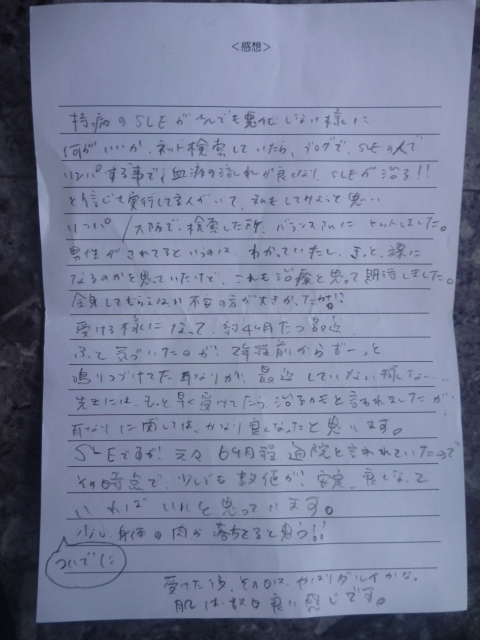 <感想>
持病のSLEが少しでも悪化しない様に
何がいいか、ネット検索していたら、ブログで、SLEの人で
リンパする事で、血液の流れが良くなり、SLEが治る!!
と信じて実行してる人がいて、私もしてみようと思…
リンパ/大阪で、検索した所、バランスさんに ヒットしました。
男性がされてるというのは わかっていたし、きっと、裸に
なるのかと思っていたけど、これも治療と思って期待しました。
全身してもらえない不安の方が大きかったかな!!
受ける様になって、約4ヶ月たつ最近
ふと気づいたのが! 2年程前からずーっと
鳴りつづけてた耳なりが、最近していない様な…
先生には、もっと早く受けてたら治るかもと言われましたが、
耳なりに関しては、かなり良くなったと思います。
SLEですが、元々 6ヶ月程 通院と言われていたので
その時点で、少しでも数値が! 良くなって
いればいいなと思っています。
少し、身体の肉が落ちてると思う!!
ついでに
受けた後、その日は、やはりダルイかな。
肌は数日良い感じです。